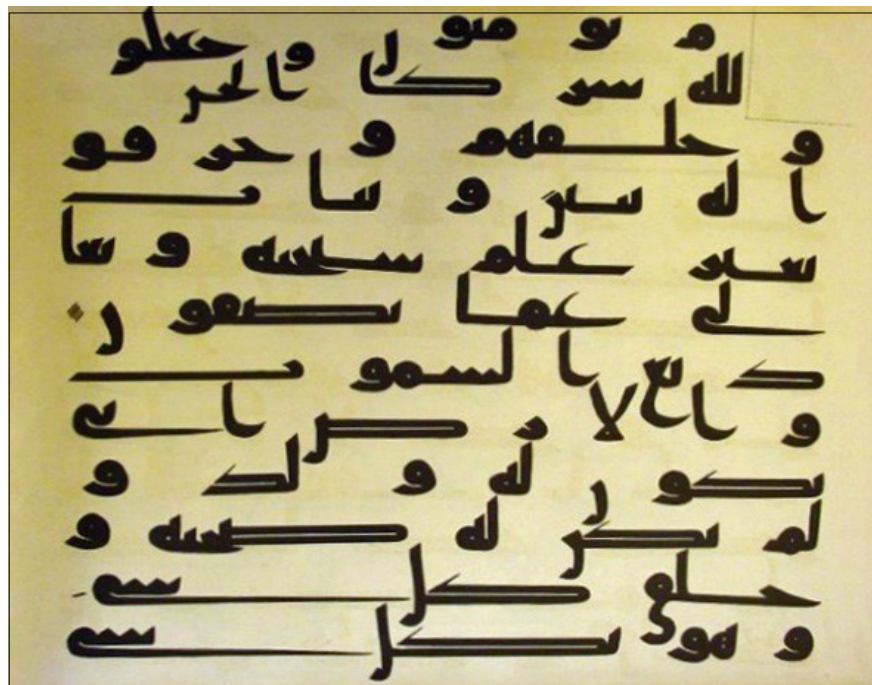 م يومنون وجعلو
لله شركا الجن
وخلقهم وخرقو
ا له بنين وبنات
بغير علم سبحنه وتعا
لى عما يصفون
بديع السموت
والارض انى
يكون له ولد و
لم تكن له صحبه و
خلق كل شى
وهو بكل شى